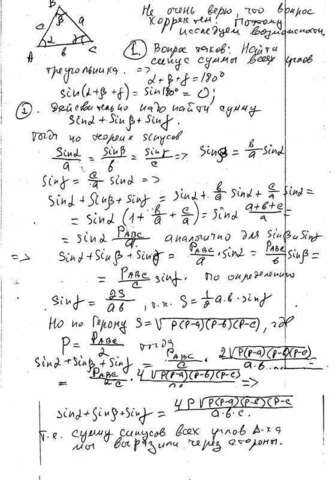 Не очень верю, что вопрос
корректен! Поэтому
исследуем возможности
β
a
α
b
A
B
C
1. Вопрос таков: Найти
синус суммы всех углов
треугольника. =>
α+β+γ=180°
sin(α+β+γ) = sin180° = 0;
2. Действительно надо найти сумму
sinα + sinβ + sinγ.
Тогда по теореме sinусов
sinα/a = sinβ/b = sinγ/c => sinβ = b/a sinα
sinγ = c/a sinα =>
sinα + sinβ + sinγ = sinα + b/a sinα + c/a sinα =
= sinα (1 + b/a + c/a) = sinα (a+b+c)/a =
= sinα P_ABC/a аналогично для sinβ и sinγ
=> sinα + sinβ + sinγ = P_ABC/a · sinα = P_ABC/b sinβ =
= P_ABC/c sinγ. По определению
sinγ = 2S/ab, т.к. S = 1/2 a.b. sinγ
Но по Герону S = √p(p-a)(p-b)(p-c), где
p = P_ABC/2 тогда
sinα + sinβ + sinγ = P_ABC/c · 2√p(p-a)(p-b)(p-c)/a.b. =
= P_ABC/2c · 4√p(p-a)(p-b)(p-c) =>
sinα + sinβ + sinγ = 4p√p(p-a)(p-b)(p-c)/a.b.c.
т.е. сумму синусов всех углов Δ-ка
мы выразили через стороны.